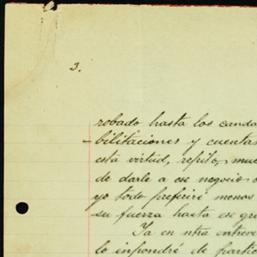 3.
robado hasta los canda
bilitaciones y cuentas
está virtud, repito, mue
de darle a ese negocio
yo todo preferiré menos
su fuerza hasta ese gra
Ya en ntra entrev
lo impondré de partic